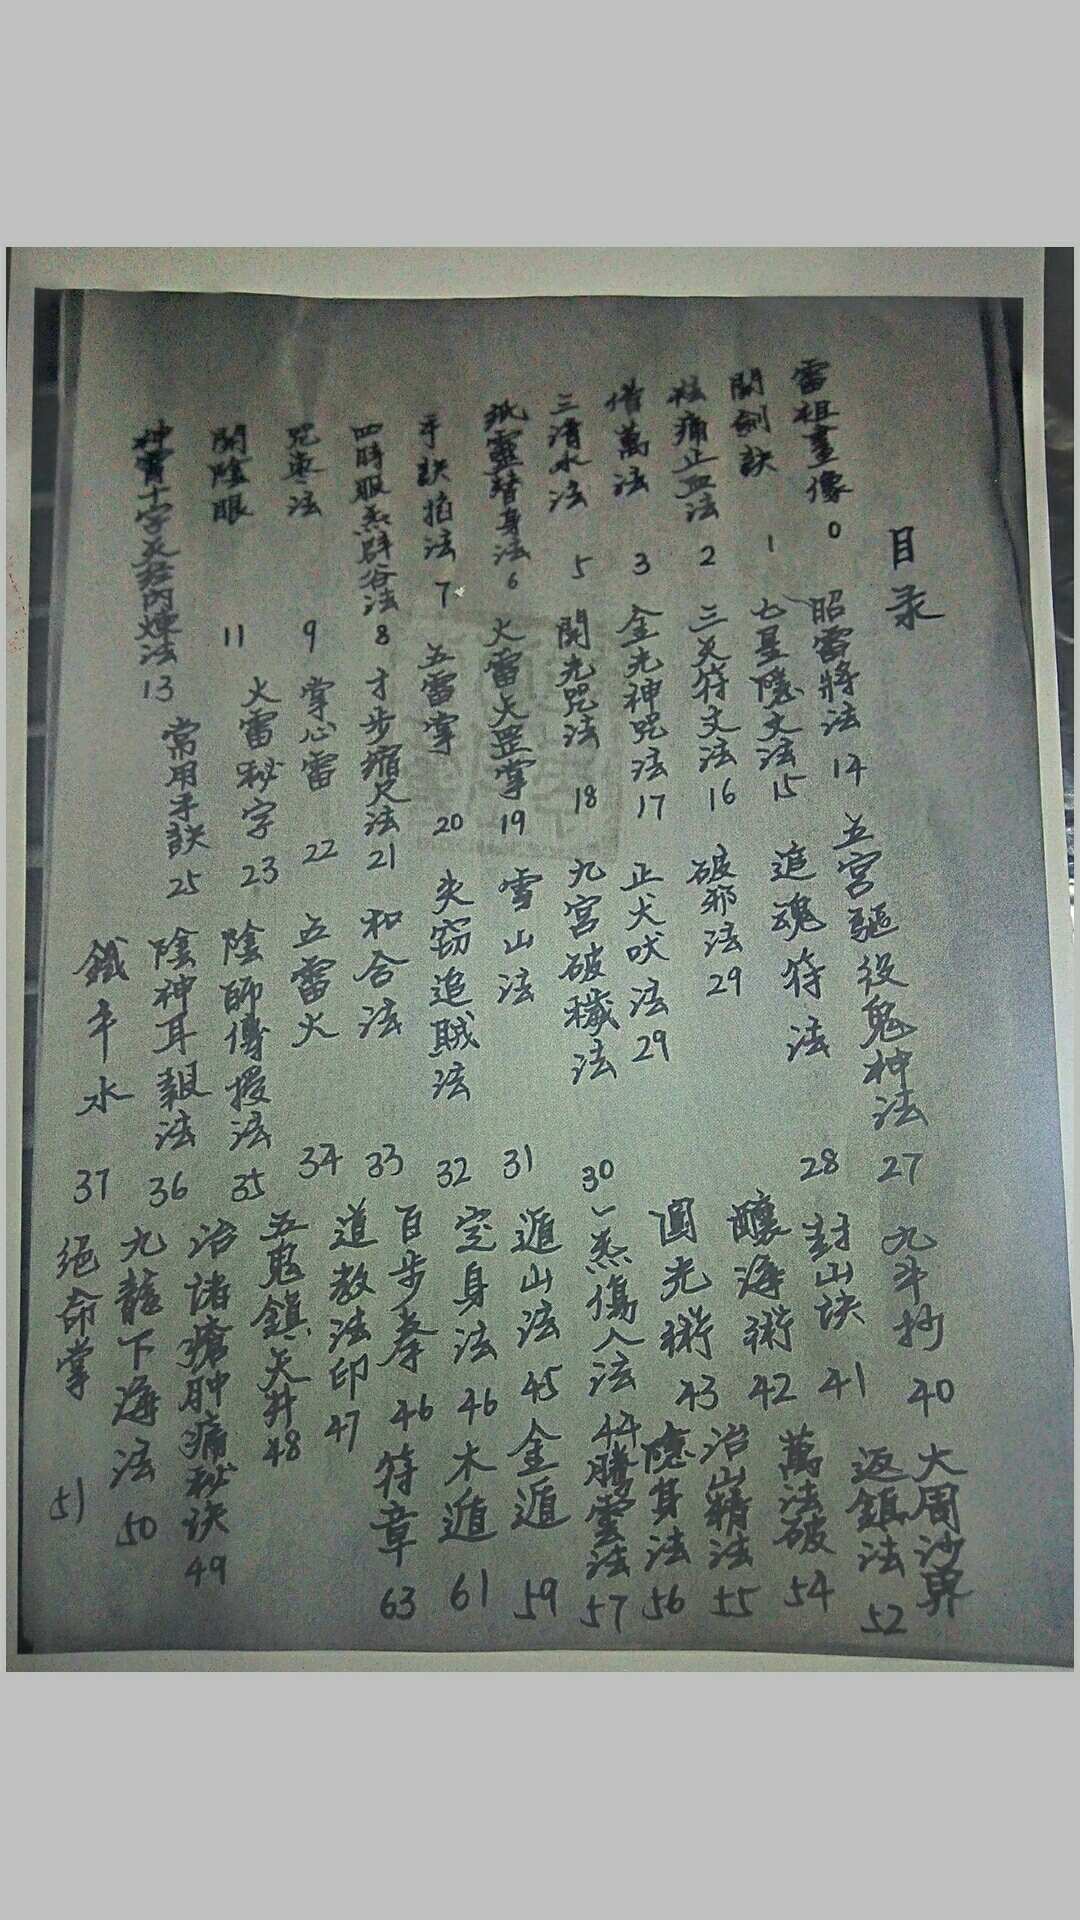 目录
雷祖畫像 0
開劍訣 1
祛痛止血法 2
借萬法 3
三清水法 5
紙靈替身法 6
手訣掐法 7
四時服炁辟谷法 8
咒棗法 9
開陰眼 11
神霄十字天經內煉法 13
昭雷將法 14
七星隱文法 15
三天符文法 16
金光神咒法 17
開光咒法 18
火雷天罡掌 19
五雷掌 20
才步縮尺法 21
掌心雷 22
火雷秘字 23
常用手訣 25
五宫驅役鬼神法 27
追魂符法 28
破邪法 29
正犬吠法 29
九宫破穢法 30
雪山法 31
失窃追賊法 32
和合法 33
五雷火 34
陰師傳授法 35
陰神耳報法 36
鐵牛水 37
九斗抄 40
封山诀 41
釀海術 42
圓光術 43
一炁傷人法 44
遁山法 45
定身法 46
百步拳 46
道教法印 47
五鬼鎮天井 48
治諸瘡肿痛秘诀 49
九龍下海法 50
絕命掌 51
大周沙界
返鎮法 52
萬法破 54
治山精法 55
隱身法 56
騰雲法 57
金遁 59
木遁 61
符章 63